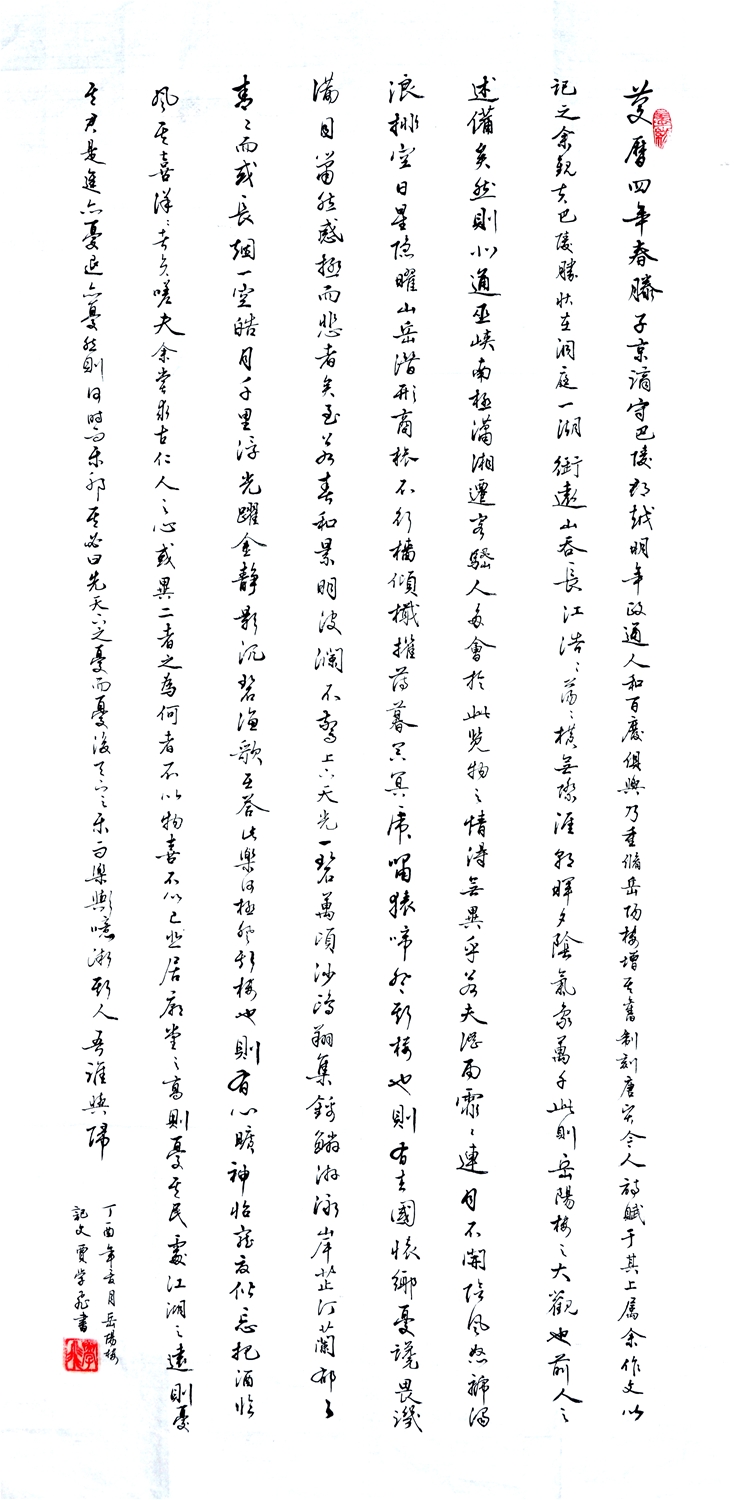 慶曆四年春滕子京謫守巴陵郡越明年政通人和百廢俱興乃重脩岳陽樓增其舊制刻唐賢今人詩賦于其上屬余作文以
記之余觀夫巴陵勝狀在洞庭一湖銜遠山吞長江浩〻蕩〻橫無際涯朝暉夕陰氣象萬千此則岳陽樓之大觀也前人之
述備矣然則北通巫峽南極瀟湘遷客騷人多會於此覽物之情得無異乎若夫淫雨霏〻連月不開陰風怒號濁
浪排空日星隱曜山岳潛形商旅不行檣傾檝摧薄暮冥冥虎嘯猿啼登斯樓也則有去國懷鄉憂讒畏譏
滿目蕭然感極而悲者矣至若春和景明波瀾不驚上下天光一碧萬頃沙鷗翔集錦鱗游泳岸芷汀蘭郁〻
青〻而或長烟一空皓月千里浮光躍金靜影沉碧漁歌互答此樂何極登斯樓也則有心曠神怡寵辱偕忘把酒臨
風其喜洋〻者矣嗟夫余嘗求古仁人之心或異二者之為何者不以物喜不以己悲居廟堂之高則憂其民處江湖之遠則憂
其君是進亦憂退亦憂然則何時而樂邪其必曰先天下之憂而憂後天下之樂而樂歟噫微斯人吾誰與歸
丁酉年玄月岳陽樓
記文賈學飛書